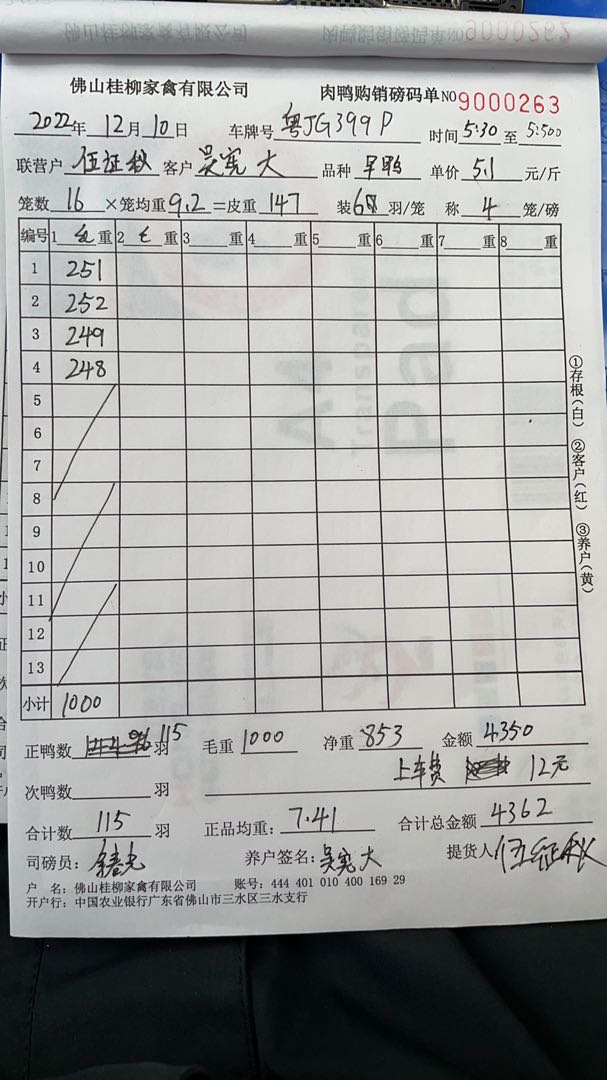 佛山桂柳家禽有限公司 肉鸭购销磅码单NO 9000262
佛山桂柳家禽有限公司 肉鸭购销磅码单NO 9000263
2022年 12月 10日 车牌号 粤JG399P 时间 5:30 至 5:500
联营户 客户 吴宪大 品种 旱鸭 单价 5.1 元/斤
笼数 16 ×笼均重 9.2 =皮重 147 装 羽/笼 称 4 笼/磅
编号 1 重 2 重 3 重 4 重 5 重 6 重 7 重 8 重
1 251
2 252
3 249
4 248
5
6
7
8
9
10
11
12
13
小计 1000
①存根(白) ②客户(红) ③养户(黄)
正鸭数 115 羽 毛重 1000 净重 853 金额 4350
上车费 12元
次鸭数 羽
合计数 115 羽 正品均重: 7.41 合计总金额 4362
司磅员: 养户签名: 吴宪大 提货人 伍征秋
户 名: 佛山桂柳家禽有限公司 账号: 444 401 010 400 169 29
开户行: 中国农业银行广东省佛山市三水区三水支行